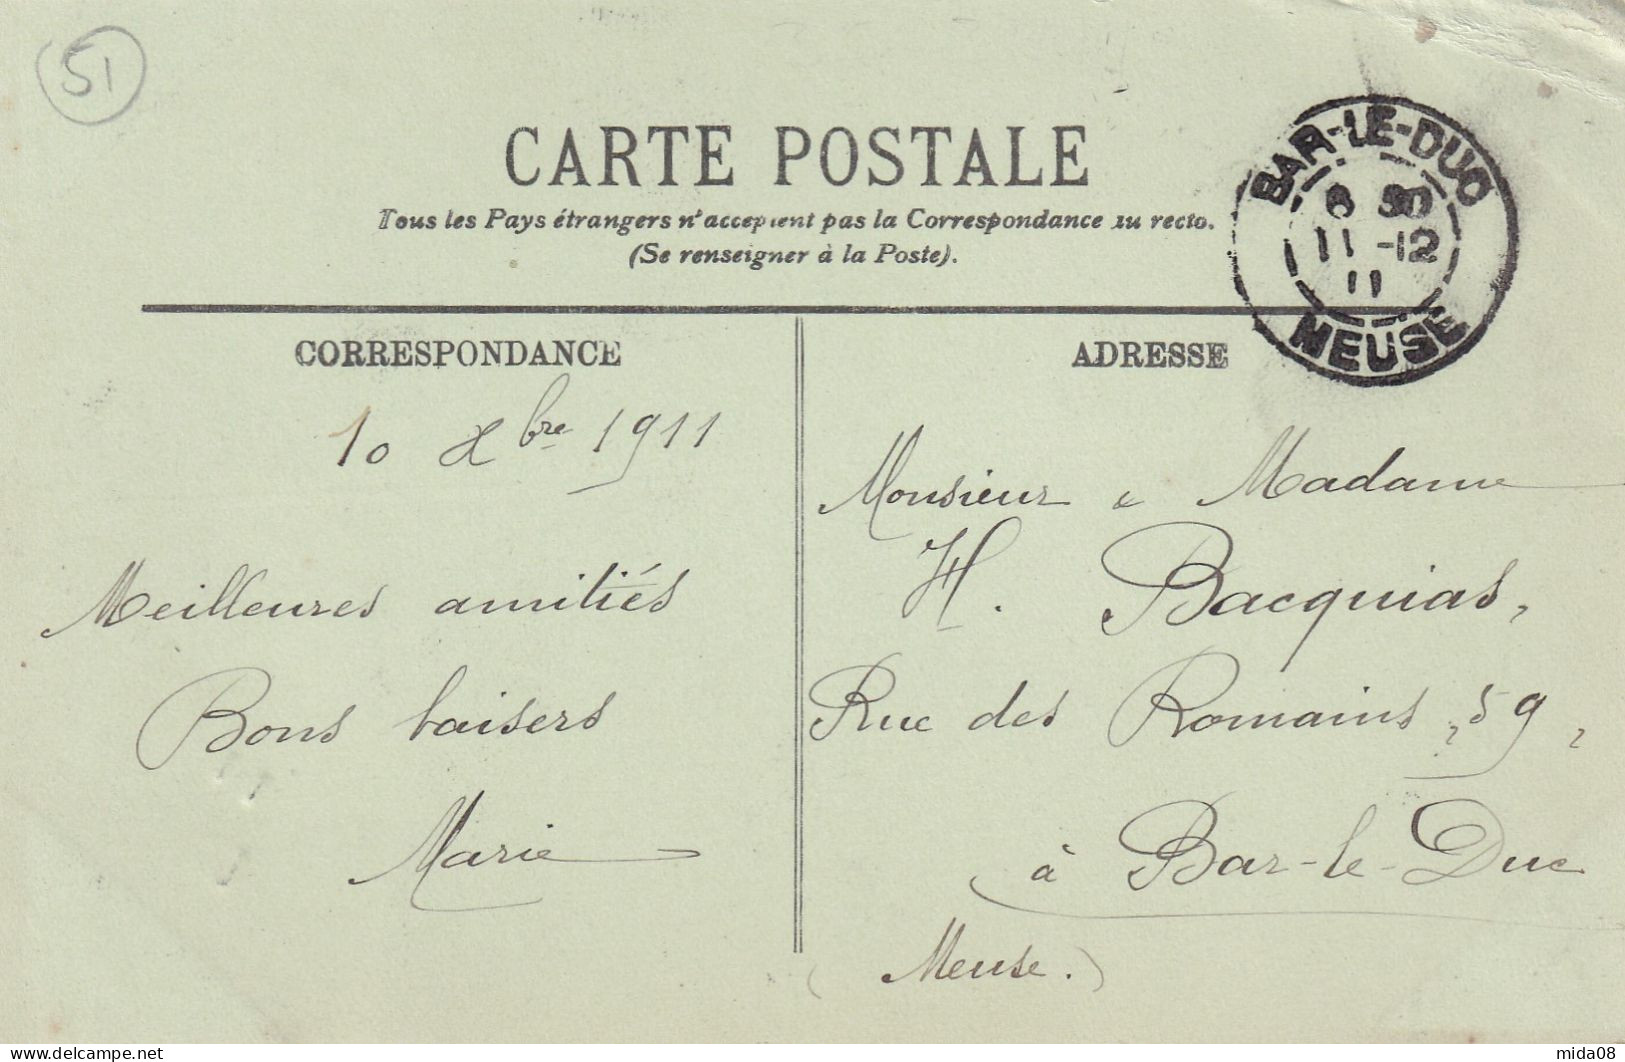 51
CARTE POSTALE
Tous les Pays étrangers n'acceptent pas la Correspondance au recto.
(Se renseigner à la Poste).
BAR-LE-DUC
11 -12
11
MEUSE
CORRESPONDANCE
10 Xbre 1911
Meilleures amitiés
Bons baisers
Marie
ADRESSE
Monsieur & Madame
H. Bacquias,
Rue des Romains, 59,
à Bar-le-Duc
(Meuse.)
mida08